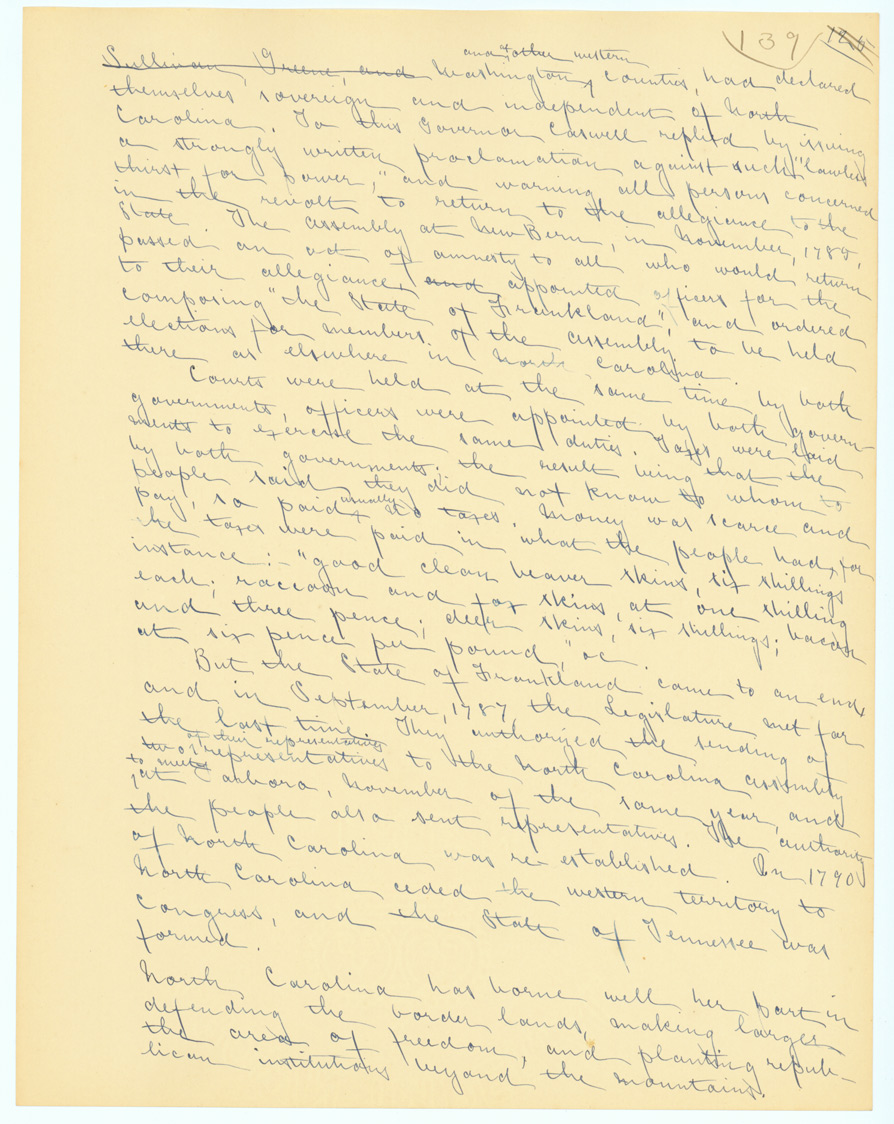 139
Sullivan, Greene, and Washington, and other western counties, had declared
themselves sovereign and independent of North
Carolina. To this Governor Caswell replied by issuing
a strongly written proclamation against such "lawless
thirst for power," and warning all persons concerned
in the revolt to return to the allegiance to the
State. The Assembly at New Bern, in November, 1785,
passed an act of amnesty to all who would return
to their allegiance, and appointed officers for the
composing "the State of Frankland", and ordered
elections for members of the assembly to be held
there as elsewhere in North Carolina.
Courts were held at the same time by both
governments, officers were appointed by both govern-
ments to exercise the same duties. Taxes were laid
by both governments, the result being that the
people said they did not know to whom to
pay, so paid usually no taxes. Money was scarce and
the taxes were paid in what the people had, for
instance:- "good clean beaver skins, six shillings
each; raccoon and fox skins, at one shilling
and three pence; deer skins, six shillings; bacon
at six pence per pound," &c.
But the State of Frankland came to an end,
and in September, 1787, the Legislature met for
the last time. They authorized the sending of
two of their representatives
representatives to the North Carolina assembly
to meet
at Tarboro, November of the same year, and
the people also sent representatives. The authority
of North Carolina was re-established. In 1790
North Carolina ceded the western territory to
Congress, and the State of Tennessee was
formed.
North Carolina has borne well her part in
defending the border lands, making larger
the area of freedom, and planting repub-
lican institutions beyond the mountains.